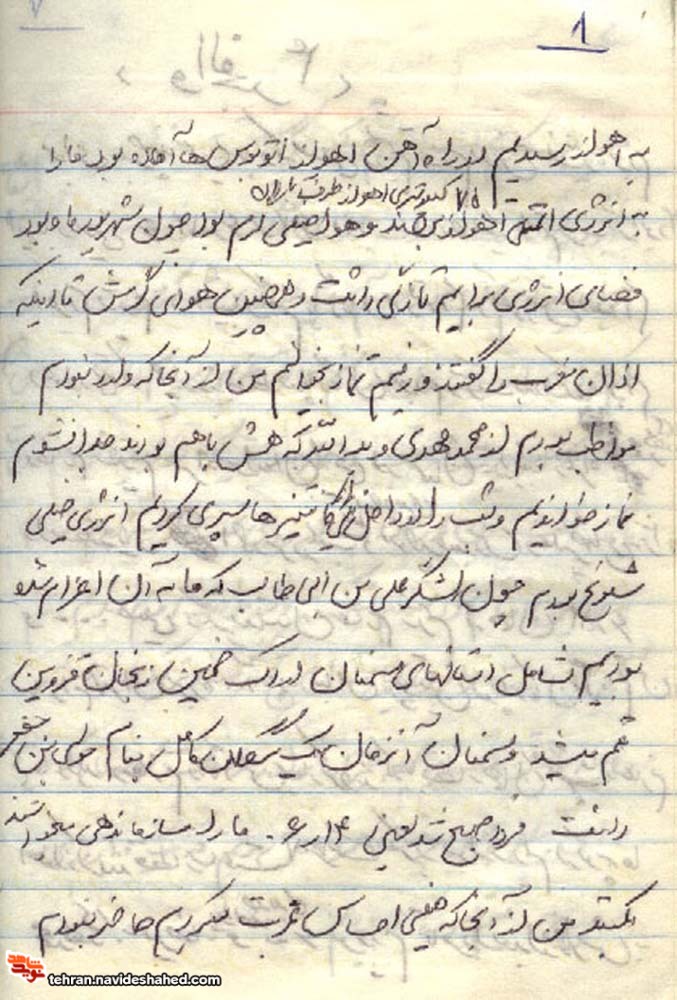 ۱
به اهواز رسیدیم در راه آهن اهواز اتوبوس ها آماده بود ما را
۷۵ کیلومتری اهواز طرف
به انرژی اتمی اهواز بردند و هوا خیلی گرم بود چون شهریور ماه بود
فضای انرژی برایم تازگی داشت و همچنین هوای گرمش تا اینکه
اذان مغرب را گفتند و رفتیم نماز بخوانیم من از آنجا که بلد نبودم
مواظب بودم از محمد مهدی و یداله که همش باهم بودند جدا نشوم
نماز خواندیم و شب را در داخل کانتینرها سپری کردیم انرژی خیلی
شلوغ بود چون لشگر علی بن ابی طالب که ما به آن اعزام شده
بودیم شامل استانهای سمنان اراک خمین زنجان قزوین
قم میشد و سمنان آنزمان یک گردان کامل بنام موسی بن جعفر
داشت فردا صبح شد یعنی ۶/۱۴ ما را سازماندهی میخواستند
بکنند من از آنجا که خیلی احساس غربت میکردم حاضر نبودم
نوید شاهد
tehran.navideshahed.com